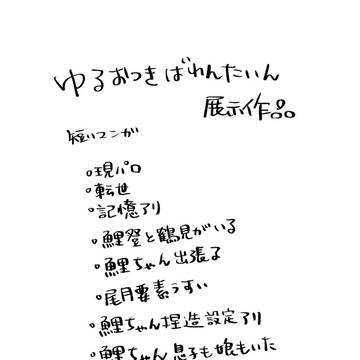 ゆるおつきばれんたいん
展示作品
短いマンガ
○現パロ
○転世
○記憶アリ
○鯉登と鶴見がいる
○鯉ちゃん出張る
○尾月要素うすい
○鯉ちゃん捏造設定アリ
○鯉ちゃん息子も娘もいた